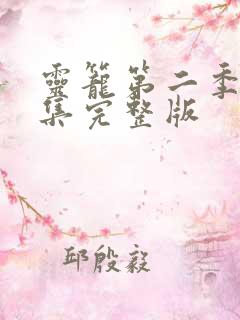 靈籠第二季
集完整版
邱殷毅